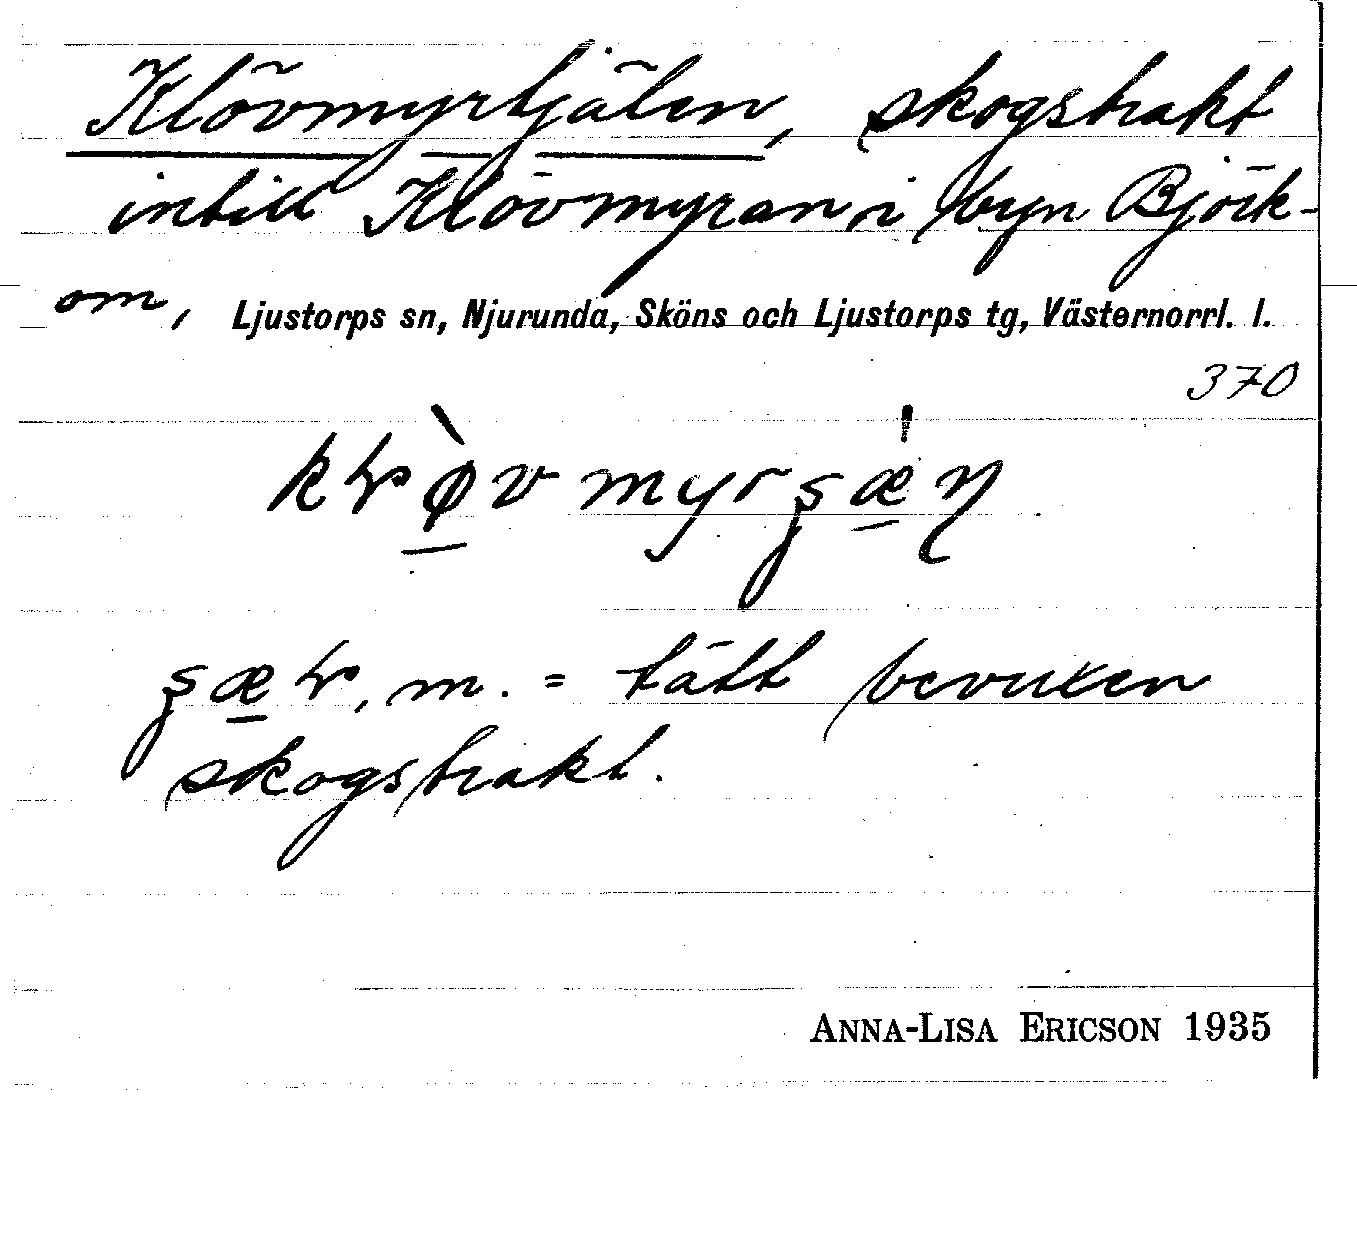 Klövmyrtjälen, skogstrakt
intill Klövmyran i byn Björk-
om, Ljustorps sn, Njurunda, Sköns och Ljustorps tg, Västernorrl. l.
370
tätt bevuxen
skogstrakt.
ANNA-LISA ERICSON 1935